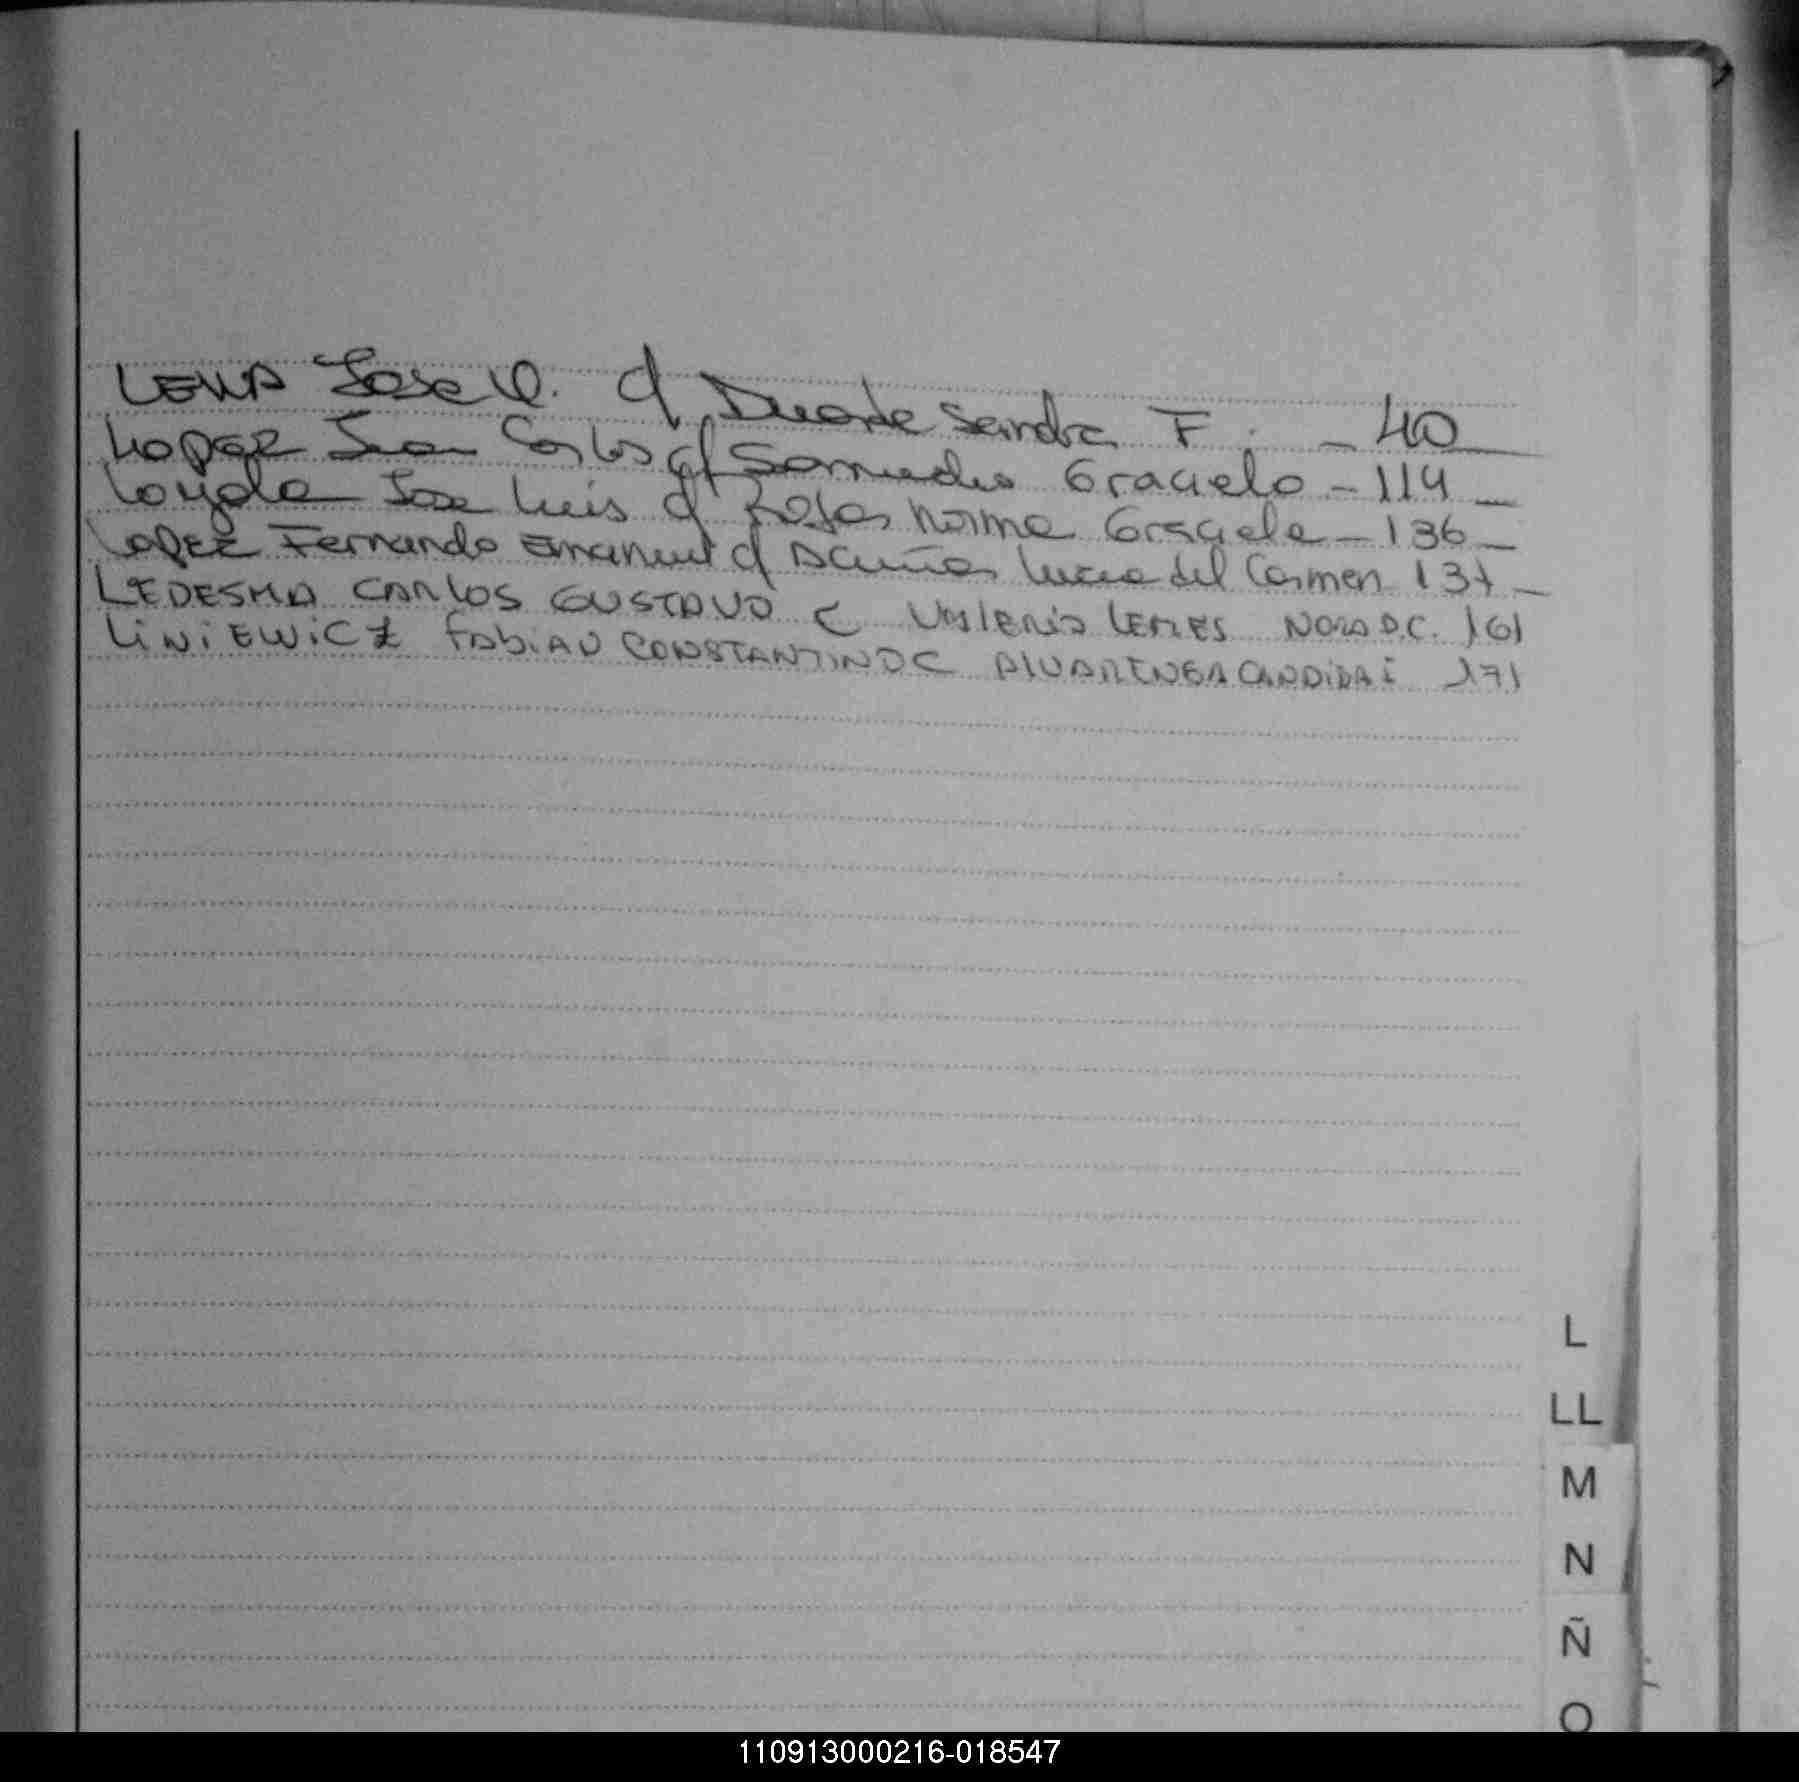 LENA Jose V. c/ Duarte Sandra F. - 40
Lopez Juan Carlos c/ Samudio Graciela - 114 -
Loyola Jose Luis c/ Rojas Norma Graciela - 136 -
Lopez Fernando Emanuel c/ Acuña Lucia del Carmen 137 -
LEDESMA CARLOS GUSTAVO C VALERIA LEMES 161
LiNiEWiCZ FABiAN CONSTANTINO C ALVARENGA CANDiDA i 171
L
LL
M
N
Ñ
O
110913000216-018547